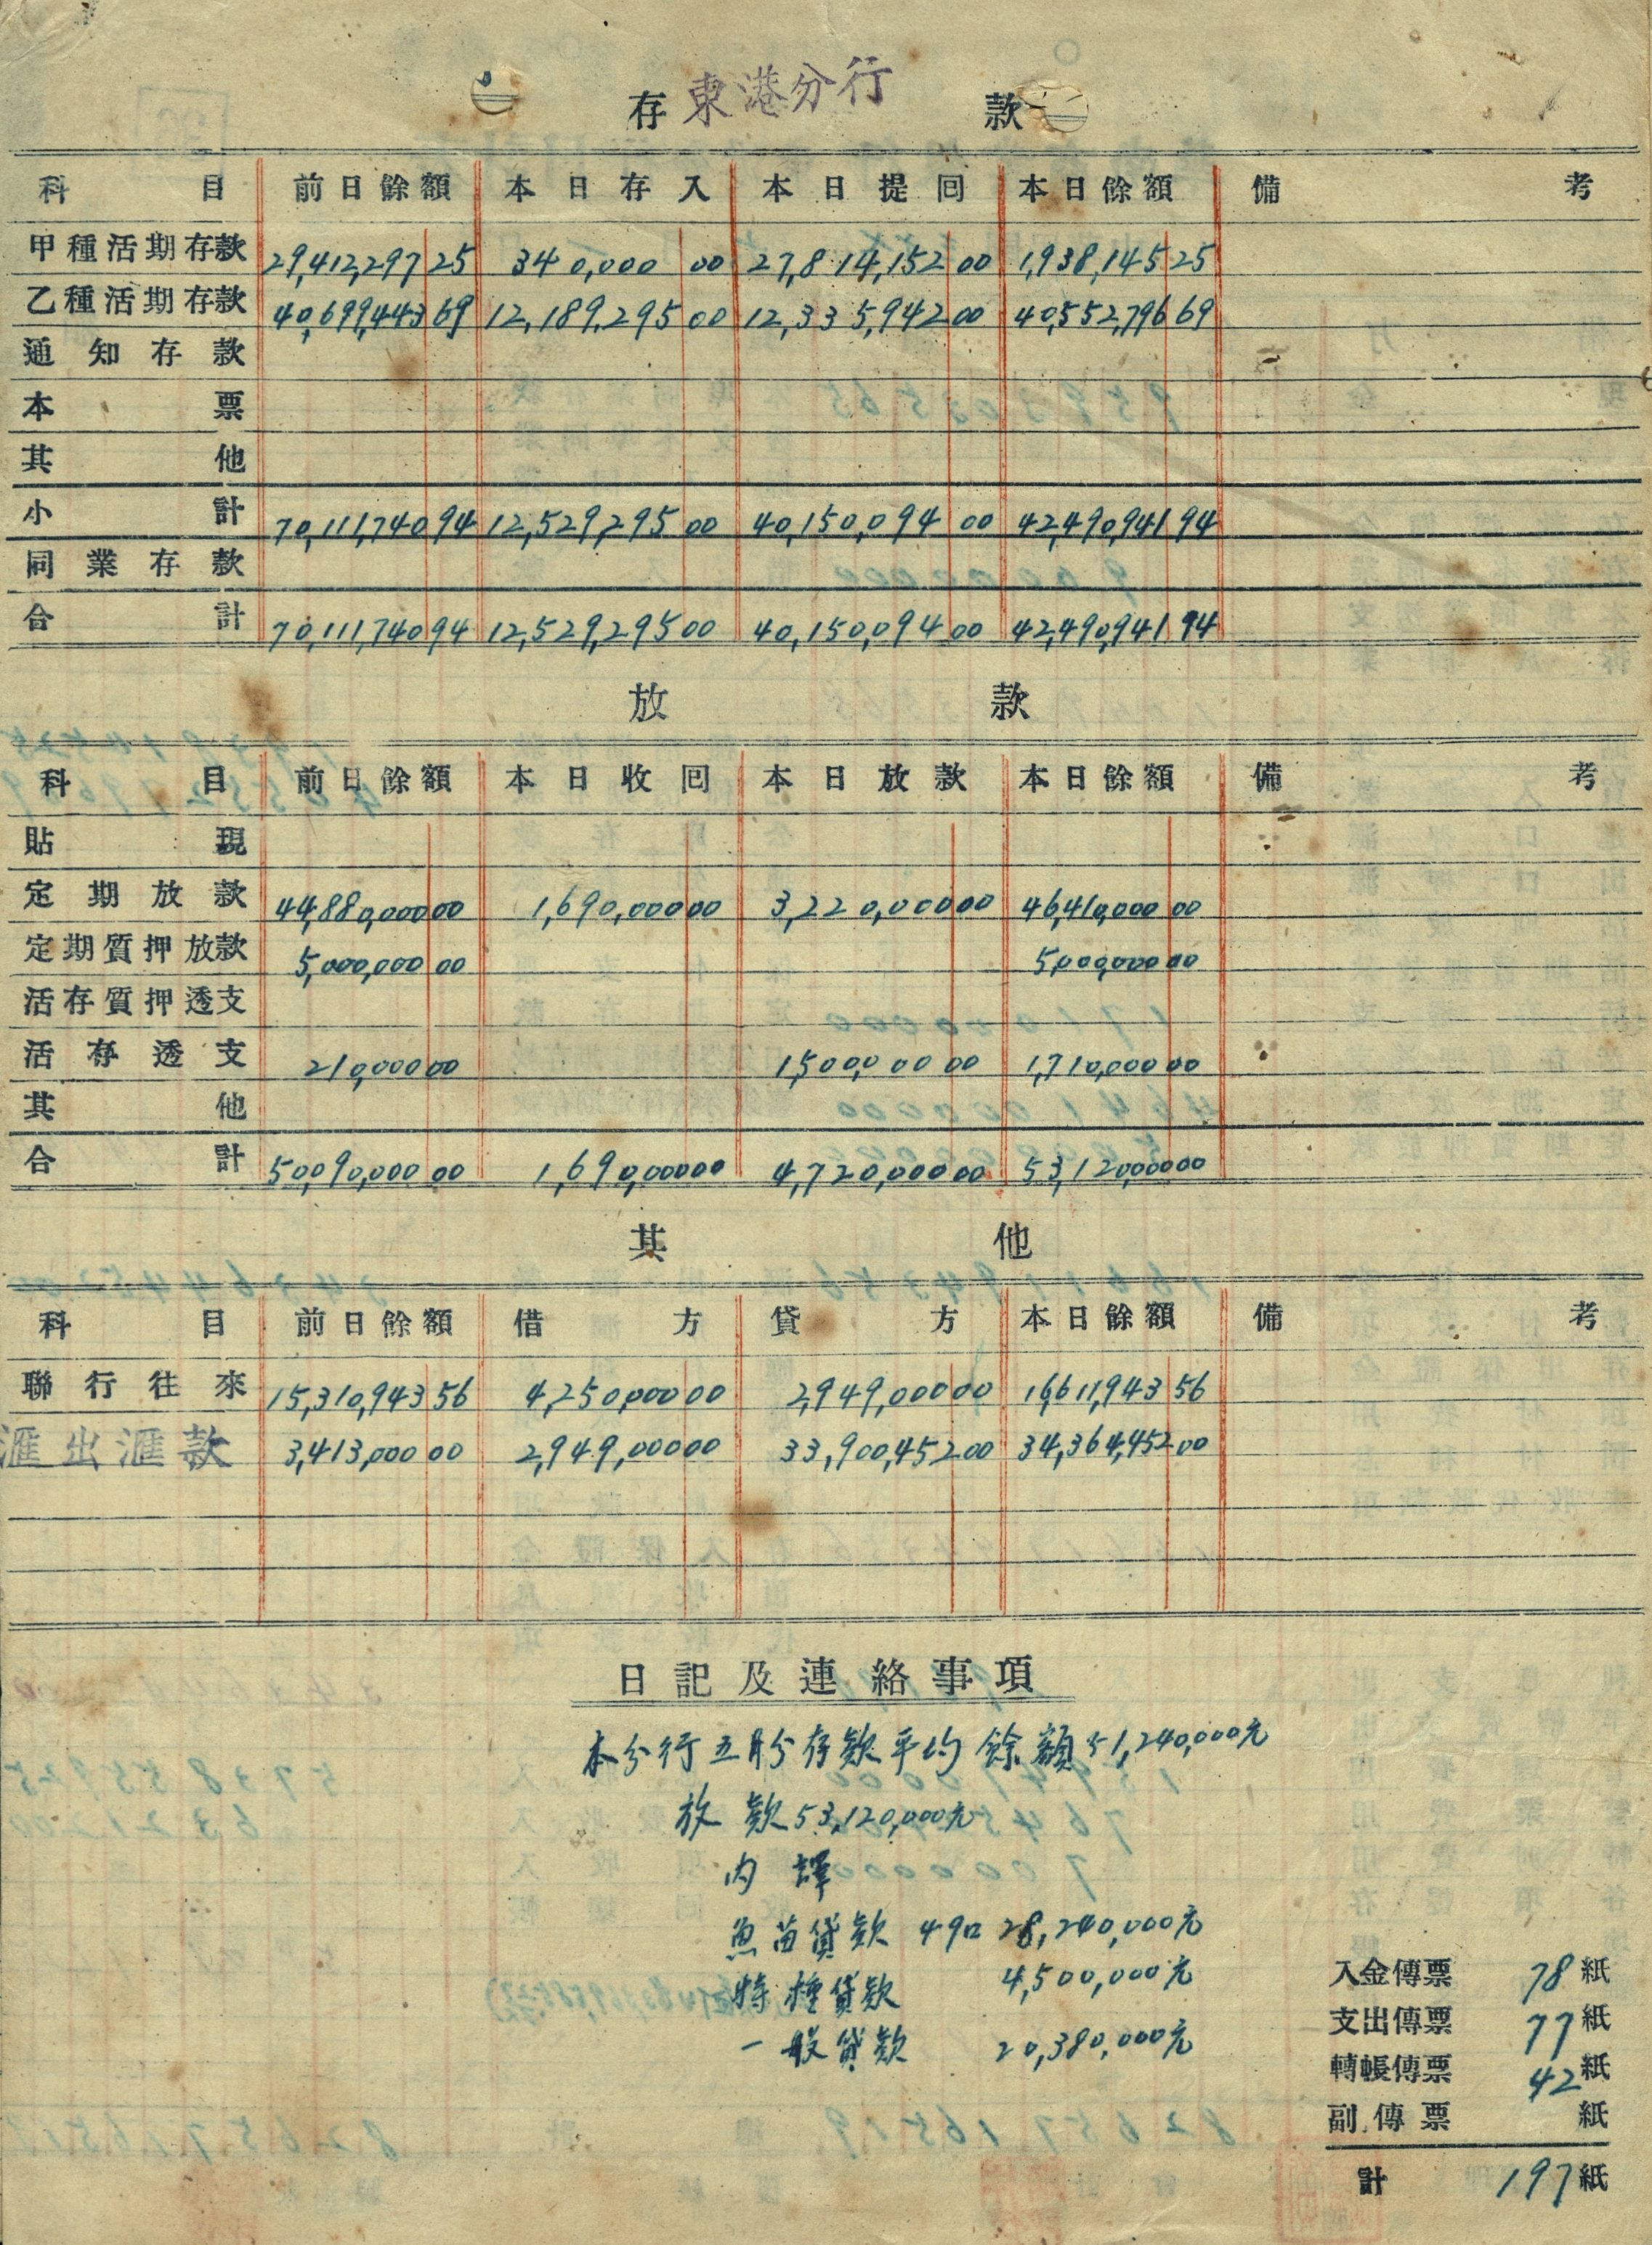 存 東港分行 款
科目 前日餘額 本日存入 本日提囘 本日餘額 備考
甲種活期存款 29,412,297 25 340,000 00 27,814,152 00 1,938,145 25
乙種活期存款 40,699,443 69 12,189,295 00 12,335,942 00 40,552,796 69
通知存款
本票
其他
小計 70,111,740 94 12,529,295 00 40,150,094 00 42,490,941 94
同業存款
合計 70,111,740 94 12,529,295 00 40,150,094 00 42,490,941 94
放款
科目 前日餘額 本日收囘 本日放款 本日餘額 備考
貼現
定期放款 44,880,000 00 1,690,000 00 3,220,000 00 46,410,000 00
定期質押放款 5,000,000 00 5,000,000 00
活存質押透支
活存透支 210,000 00 1,500,000 00 1,710,000 00
其他
合計 50,090,000 00 1,690,000 00 4,720,000 00 53,120,000 00
其他
科目 前日餘額 借方 貸方 本日餘額 備考
聯行往來 15,310,943 56 4,250,000 00 2,949,000 00 16,611,943 56
滙出滙款 3,413,000 00 2,949,000 00 33,900,452 00 34,364,452 00
日記及連絡事項
本分行五月份存款平均餘額51,240,000元
放款53,120,000元
內譯
魚苗貸款 49口 28,240,000元
特種貸款 4,500,000元
一般貸款 20,380,000元
入金傳票 78紙
支出傳票 77紙
轉帳傳票 42紙
副傳票 紙
計 197紙